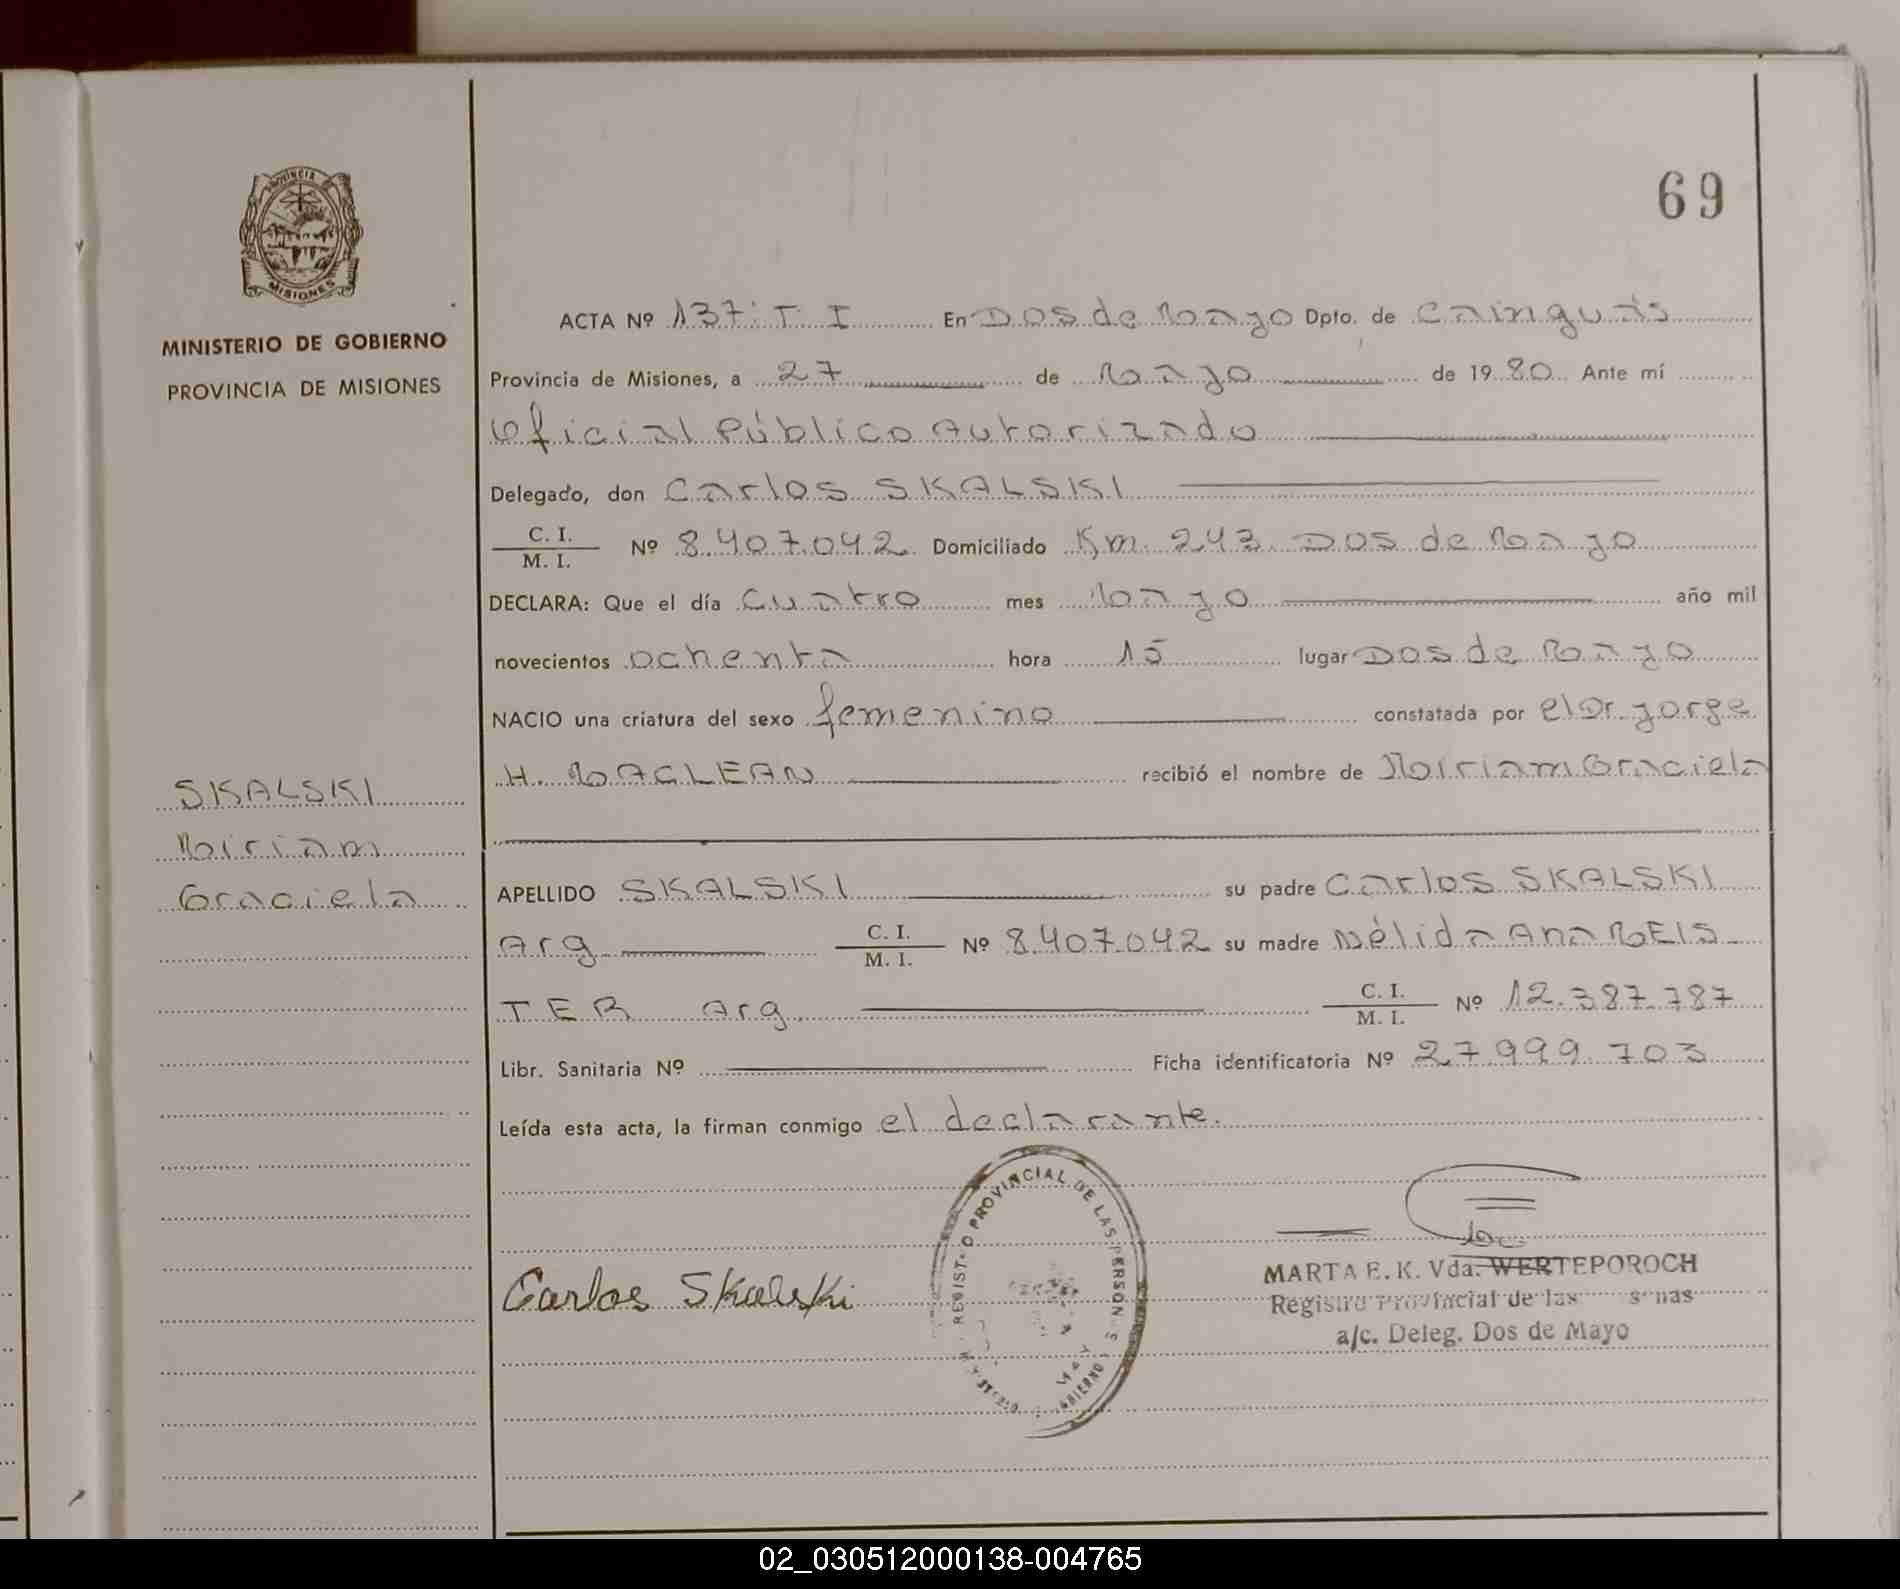 69
PROVINCIA DE
MISIONES
MINISTERIO DE GOBIERNO
PROVINCIA DE MISIONES
SKALSKI
Miriam
Graciela
ACTA Nº 137: T I En Dos de Mayo Dpto. de Cainguás
Provincia de Misiones, a 27 de Mayo de 1980 Ante mí
Oficial Público Autorizado
Delegado, don Carlos SKALSKI
C. I.
M. I. Nº 8.407.042 Domiciliado Km. 243 Dos de Mayo
DECLARA: Que el día cuatro mes Mayo año mil
novecientos ochenta hora 15 lugar Dos de Mayo
NACIO una criatura del sexo femenino constatada por el Dr. Jorge
H. MACLEAN recibió el nombre de Miriam Graciela
APELLIDO SKALSKI su padre Carlos SKALSKI
Arg C. I.
M. I. Nº 8.407.042 su madre Nélida Ana MEIS
TER Arg. C. I.
M. I. Nº 12.387.787
Libr. Sanitaria Nº Ficha identificatoria Nº 27.999.703
Leída esta acta, la firman conmigo el declarante.
PROVINCIAL DE LAS
Carlos Skalski
MARTA E. K. Vda. WERTEPOROCH
Registro Provincial de las
a/c. Deleg. Dos de Mayo
02_030512000138-004765